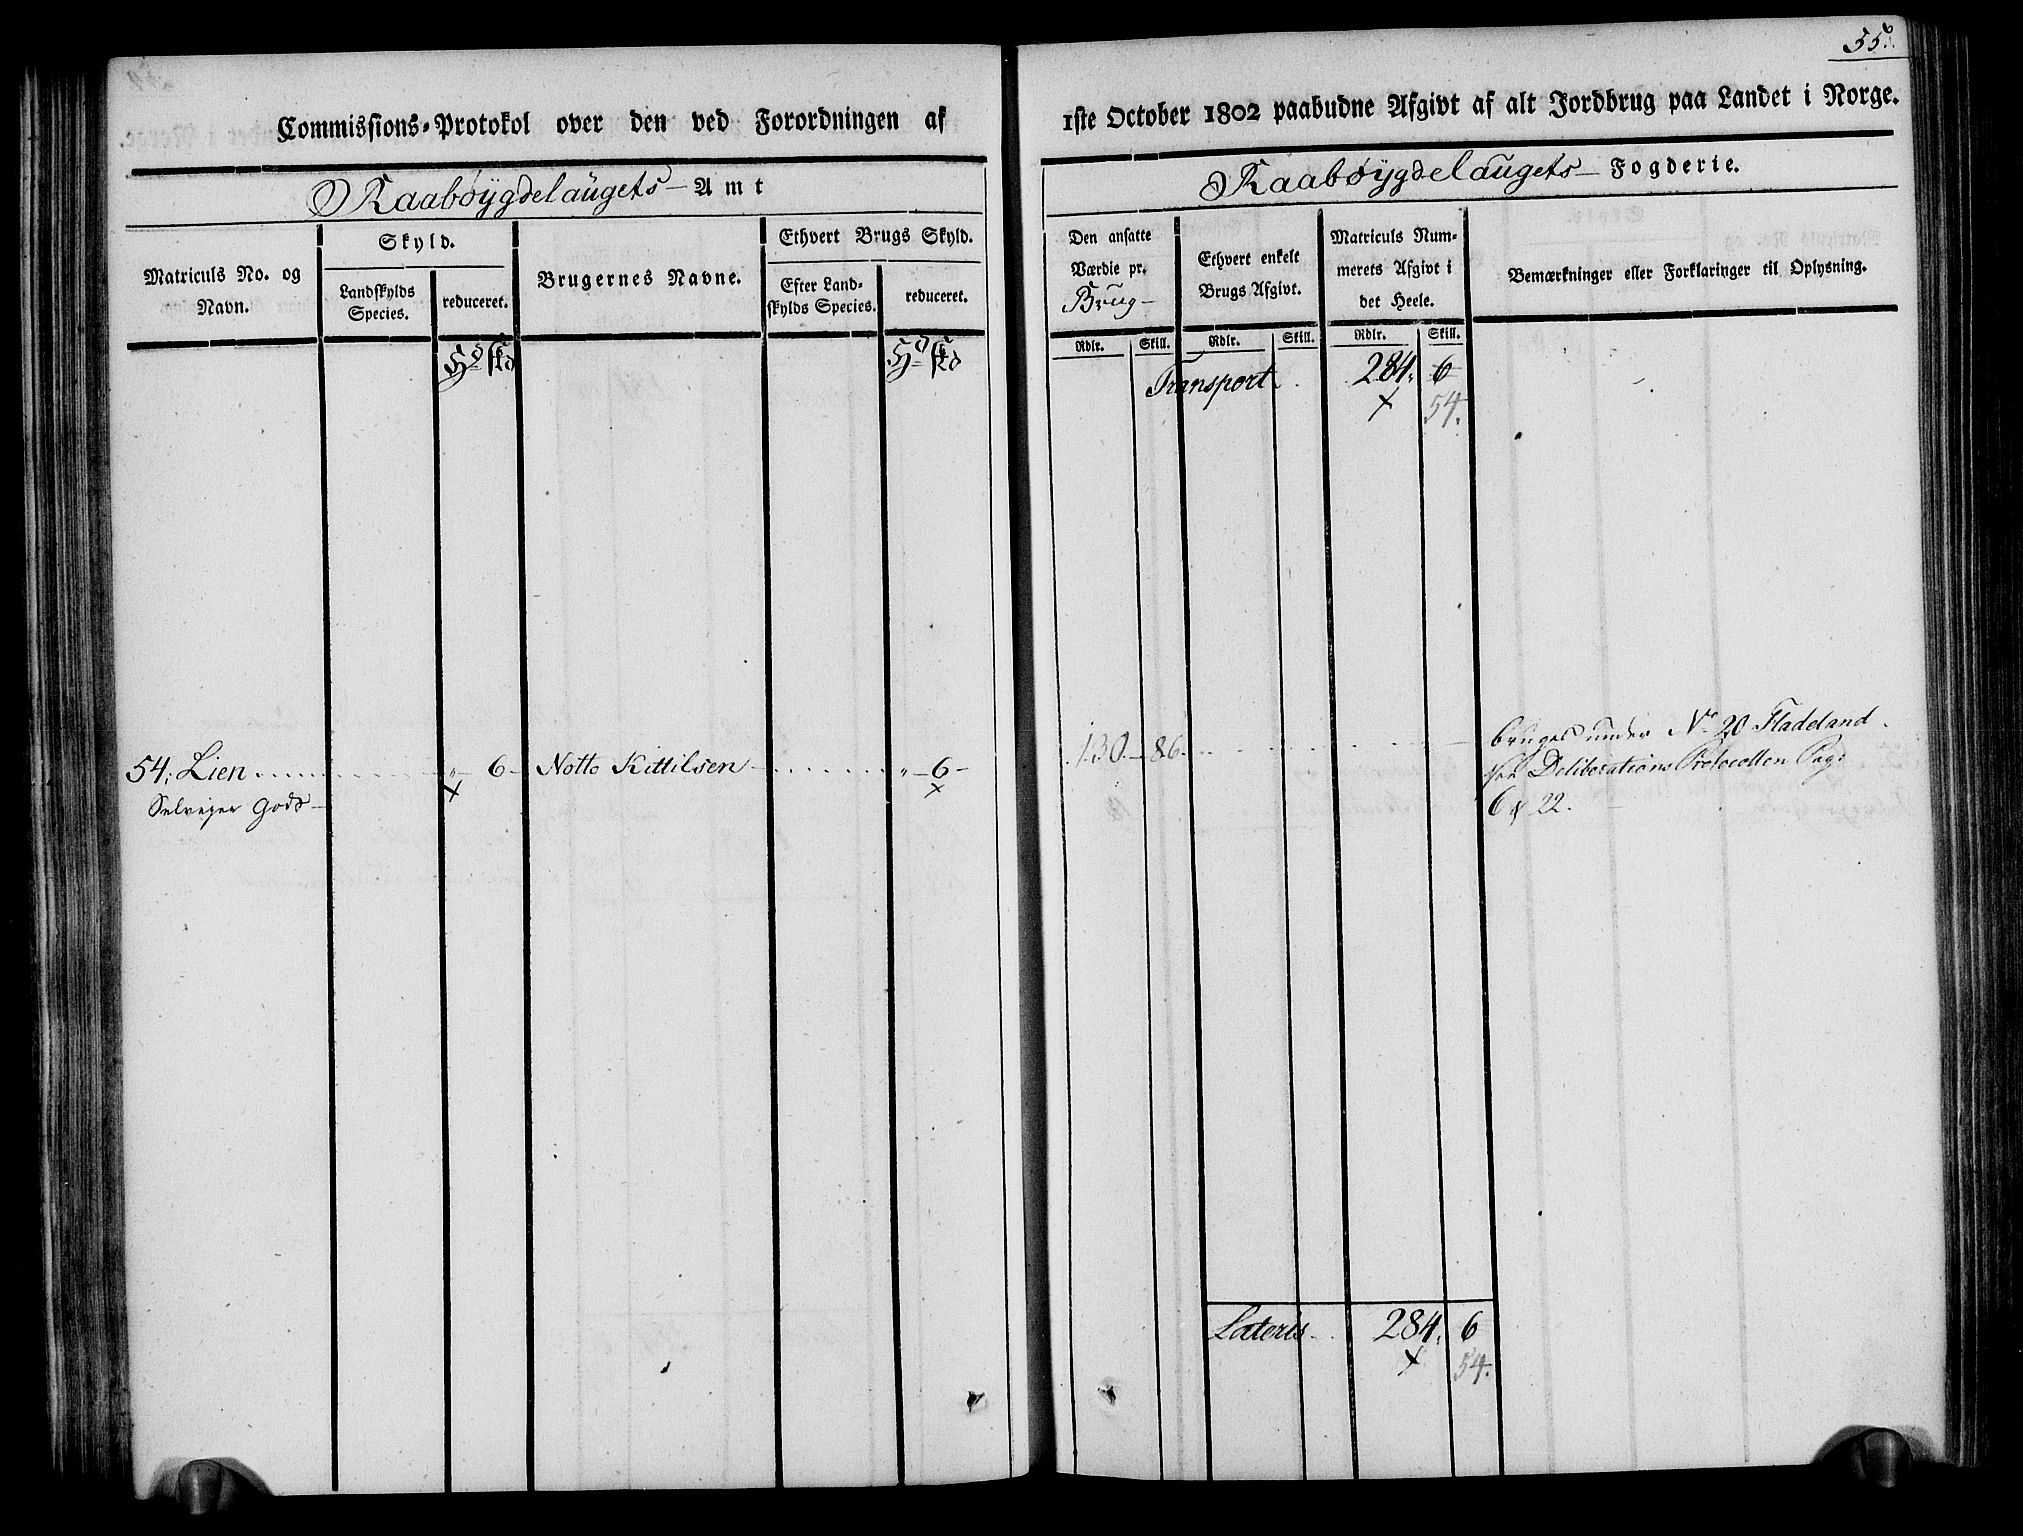 55.
Commissions-Protokol over den ved Forordningen af 1ste October 1802 paabudne Afgivt af alt Jordbrug paa Landet i Norge.
Raabøygdelaugets Amt
Raabøygdelaugets Fogderie.
Matriculs No. og Navn.
Skyld.
Landskylds Species.
reduceret.
Brugernes Navne.
Ethvert Brugs Skyld.
Efter Landskylds Species.
reduceret.
Den ansatte Værdie pr. Brug
Ethvert enkelt Brugs Afgivt.
Matriculs Nummerets Afgivt i det Heele.
Bemærkninger eller Forklaringer til Oplysning.
Rdlr. Skill. Rdlr. Skill. Rdlr. Skill.
Transport. 284. 6
54.
54. Lien 6 Notto Kittilsen 6 130 86
Selveyer Gods
bruges under No. 20 Fladeland
Deliberations Protocollen Pag:
6 & 22.
Lateris 284. 6
54.